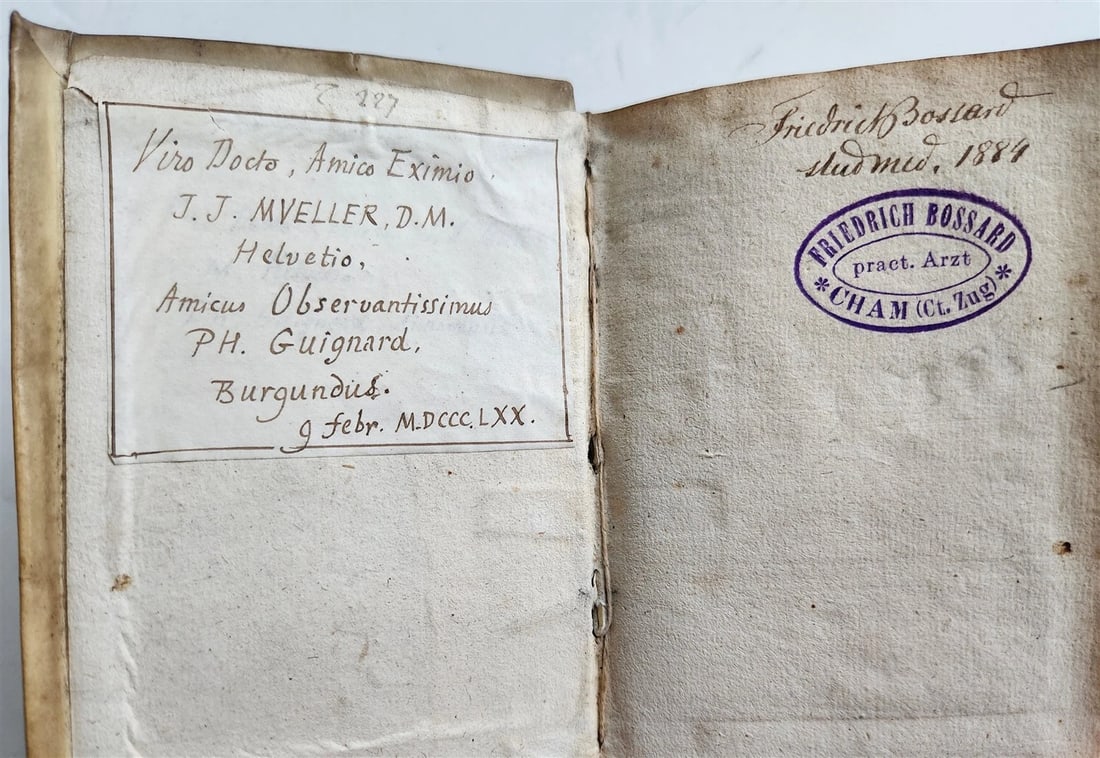 Viro Docto, Amico Eximio.
J. J. MVELLER, D.M.
Helvetio,
Amicus Observantissimus
PH. Guignard,
Burgundus.
9 febr. M.DCCC.LXX.
Friedrich Bossard
stud med. 1884
FRIEDRICH BOSSARD
pract. Arzt
* CHAM (Ct. Zug) *